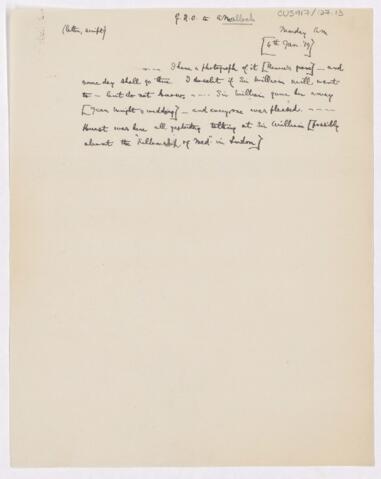 CUS417/127.13
G.R.O. to A Malloch
(letter, script) Monday am
[6th Jan. 19]
.... I have a photograph of it [Revere's grave] - and
some day shall go there. I doubt if Sir William will want
to - but do not know. .... Sir William gave her away
[Jean Wright's wedding] - and everyone was pleased ....
Hurst was here all yesterday talking at Sir William [possibly
about the "Fellowship of Med" in London]